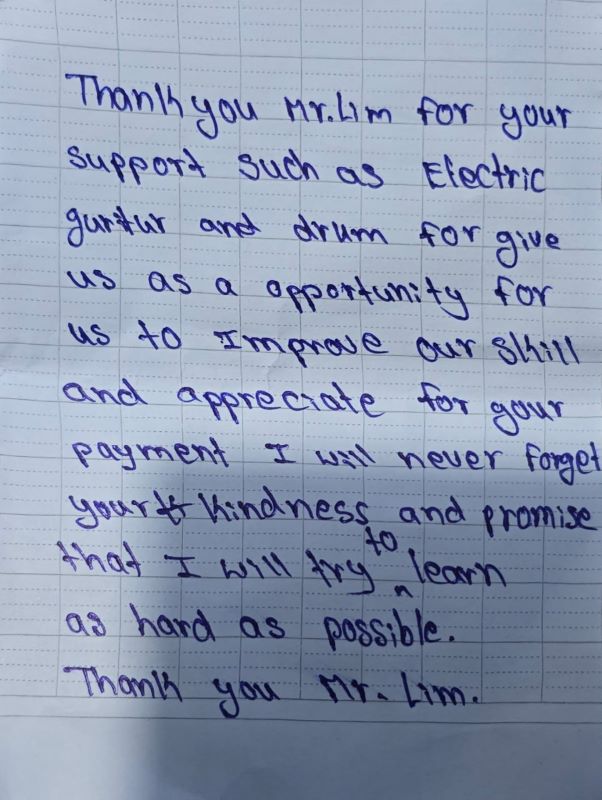 Thank you Mr. Lim for your
support such as Electric
guritur and drum for give
us as a opportunity for
us to Improve our skill
and appreciate for your
payment I will never forget
your kindness and promise
that I will try to learn
as hard as possible.
Thank you Mr. Lim.